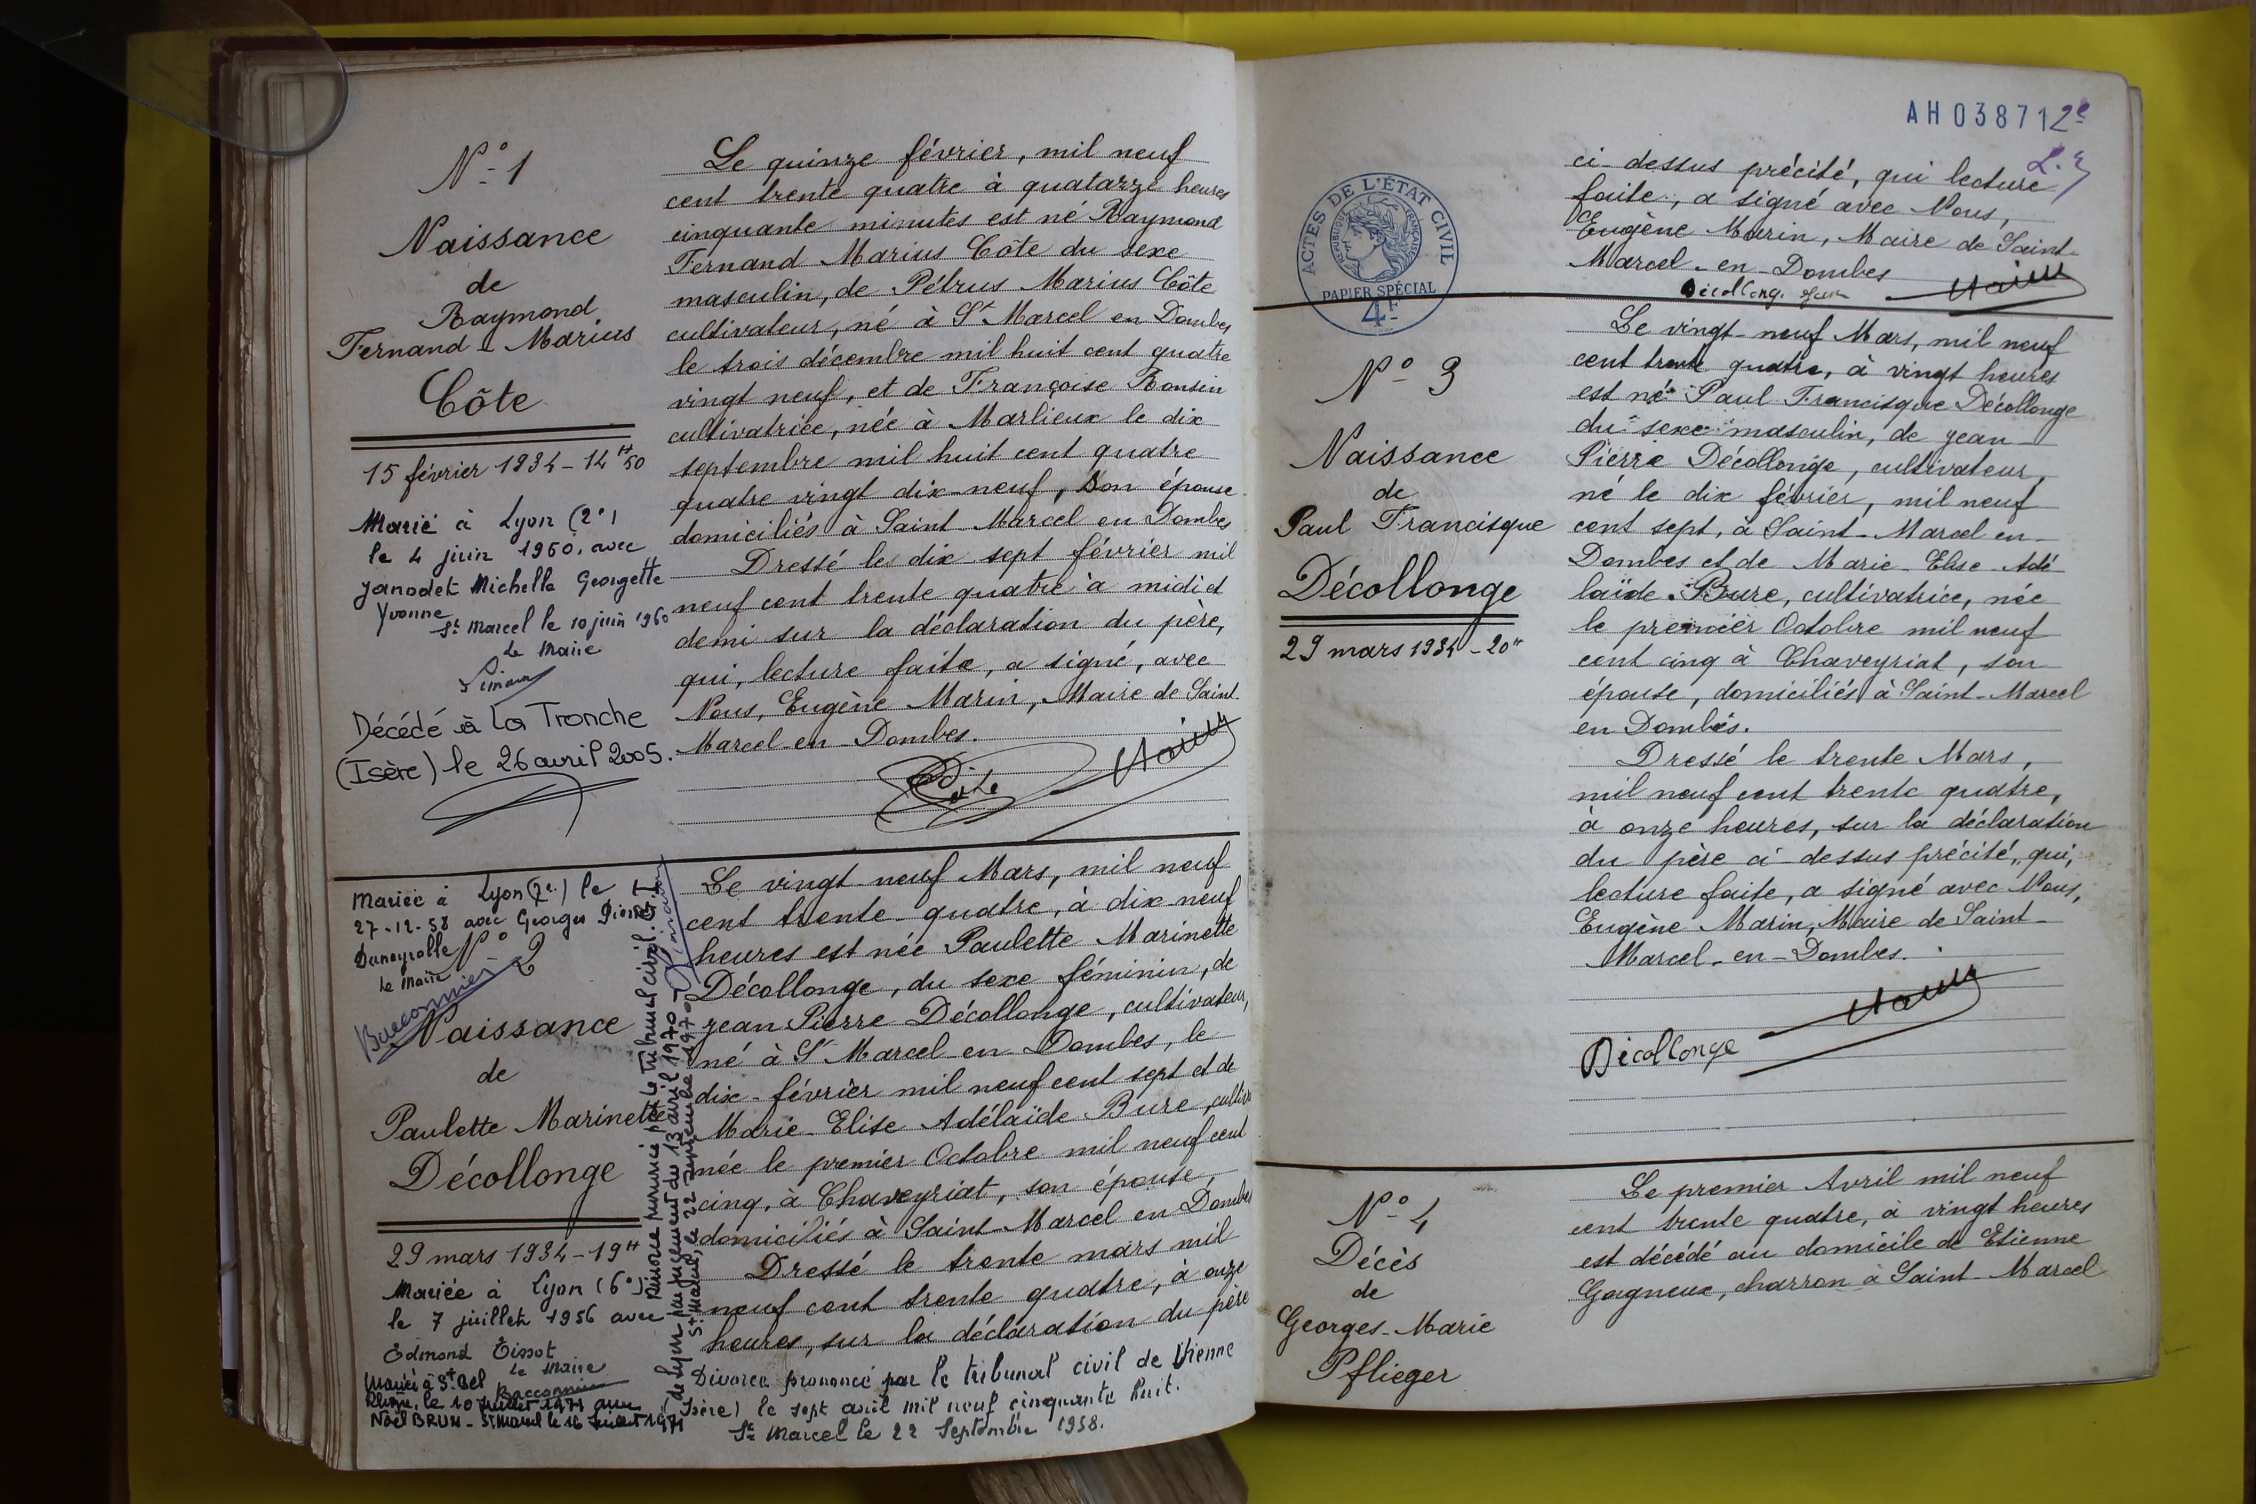 N° 1
Naissance
de
Raymond
Fernand - Marius
Côte
15 février 1934 - 14 H 50
Marié à Lyon (2°)
le 4 juin 1960, avec
Janodet Michelle Georgette
Yvonne
St Marcel le 10 juin 1960
Le Maire
Décédé à La Tronche
(Isère) le 26 avril 2005.
Le quinze février, mil neuf
cent trente quatre à quatorze heures
cinquante minutes est né Raymond
Fernand Marius Côte du sexe
masculin, de Pétrus Marius Côte
cultivateur, né à St Marcel en Dombes
le trois décembre mil huit cent quatre
vingt neuf, et de Françoise Ronsin
cultivatrice, née à Marlieux le dix
septembre mil huit cent quatre
quatre vingt dix-neuf, son épouse
domiciliés à Saint-Marcel en Dombes
Dressé le dix sept février mil
neuf cent trente quatre à midi et
demi sur la déclaration du père,
qui, lecture faite, a signé, avec
Nous, Eugène Marin, Maire de Saint
Marcel en Dombes.
Côte Marin
Mariée à Lyon (2e) le
27-12-58 avec Georges
Daneyrolle
Le Maire
Baconnier
N° 2
Naissance
de
Paulette Marinette
Décollonge
29 mars 1934 - 19 H
Mariée à Lyon (6°)
le 7 juillet 1956 avec
Edmond Tissot
Le Maire
Baconnier
Mariée à St Bel
Rhône, le 10 juillet 1971 avec
Noël BRUN - St Marcel le 16 juillet 1971
Divorce prononcé par le Tribunal civil. G. I
de Lyon par jugement du 13 avril 1970
St Marcel, le 22 septembre 1970
Le vingt-neuf Mars, mil neuf
cent trente-quatre, à dix neuf
heures est née Paulette Marinette
Décollonge, du sexe féminin, de
Jean Pierre Décollonge, cultivateur,
né à St Marcel en Dombes, le
dix-février mil neuf cent sept et de
Marie-Elise Adélaïde Bure, cultiv
née le premier Octobre mil neuf cent
cinq, à Chaveyriat, son épouse,
domiciliés à Saint-Marcel en Dombes
Dressé le trente mars mil
neuf cent trente quatre, à onze
heures, sur la déclaration du père
Divorce prononcé par le tribunal civil de Vienne
(Isère) le sept avril mil neuf cinquante huit.
St Marcel le 22 Septembre 1958.
AH038712e
ci-dessus précité, qui lecture
faite, a signé avec Nous,
Eugène Marin, Maire de Saint-
Marcel-en-Dombes
Marin
ACTES DE L'ÉTAT CIVIL
RÉPUBLIQUE FRANÇAISE
PAPIER SPÉCIAL
4F
N° 3
Naissance
de
Paul Francisque
Décollonge
29 mars 1934 - 20 H
Le vingt-neuf Mars, mil neuf
cent trente quatre, à vingt heures
est né Paul Francisque Décollonge
du sexe masculin, de Jean-
Pierre Décollonge, cultivateur,
né le dix février, mil neuf
cent sept, à Saint-Marcel en-
Dombes et de Marie-Elise-Adé
laïde Bure, cultivatrice, née
le premier Octobre mil neuf
cent cinq à Chaveyriat, son
épouse, domiciliés à Saint-Marcel
en Dombes.
Dressé le trente Mars,
mil neuf cent trente quatre,
à onze heures, sur la déclaration
du père ci-dessus précité, qui,
lecture faite, a signé avec Nous,
Eugène Marin, Maire de Saint-
Marcel-en-Dombes.
Marin
Décollonge
N° 4
Décès
de
Georges-Marie
Pflieger
Le premier Avril mil neuf
cent trente quatre, à vingt heures
est décédé au domicile de Etienne
Gagneux, charron à Saint-Marcel